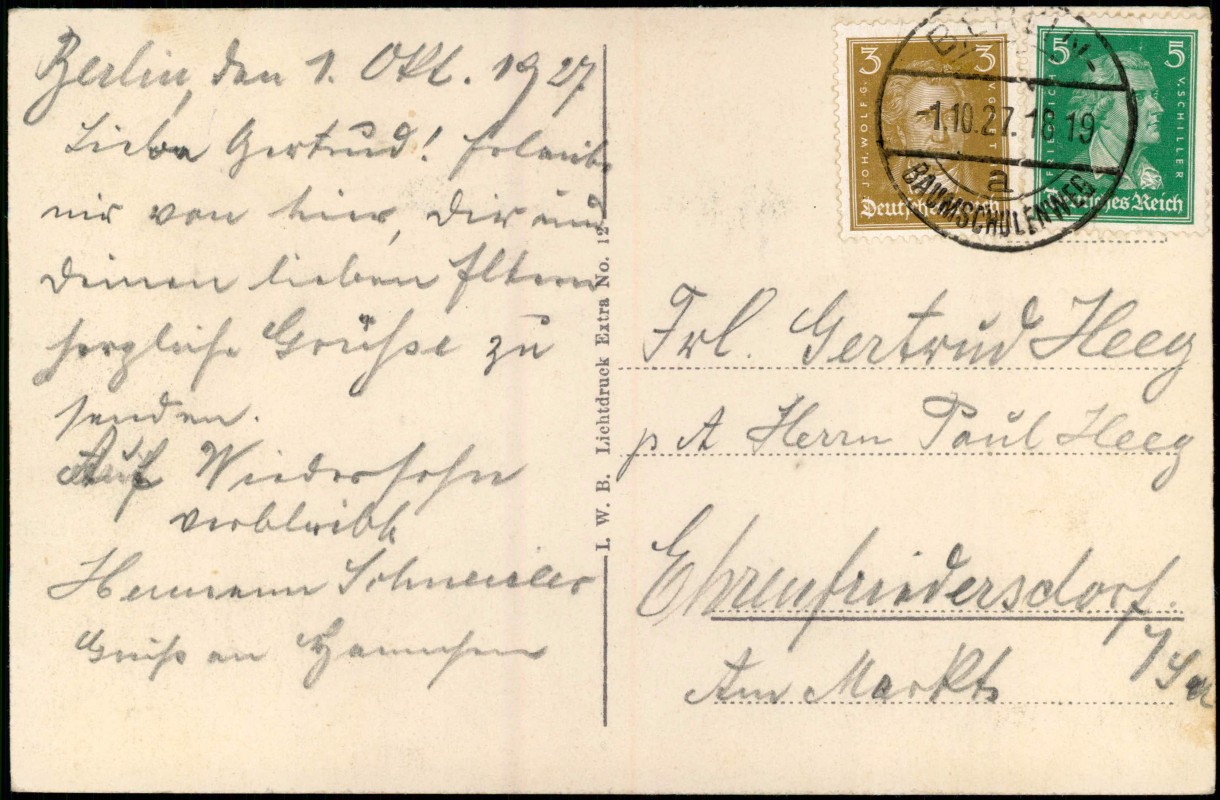 Berlin, den 1. Okt. 1927
Liebe Gertrud! Erlaube
mir von hier, Dir und
Deinen lieben Eltern
herzliche Grüße zu
senden.
Auf Wiedersehn
verbleibt
Hermann
Gruß an Hannchen
I. W. B. Lichtdruck Extra No. 12
3 3
JOH. WOLFG. V. GOETHE
Deutsches Reich
5 5
FRIEDRICH V. SCHILLER
Deutsches Reich
BERLIN-
-1.10.27.18-19
a
BAUMSCHULENWEG
Frl. Gertrud Heeg
p A Herrn Paul Heeg
Ehrenfriedersdorf.
Am Markt